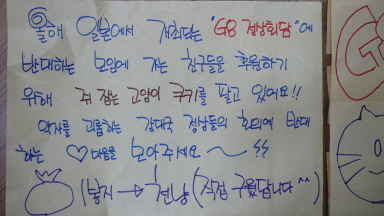 올해 일본에서 개최되는 "G8 정상회담"에
반대하는 모임에 가는 친구들을 후원하기
위해 쥐 잡는 고양이 쿠키를 팔고 있어요!!
약자를 괴롭히는 강대국 정상들의 회의에 반대
하는 ♡마음을 모아주세요~
(봉지 → 천냥 (직접 구웠답니다^^)